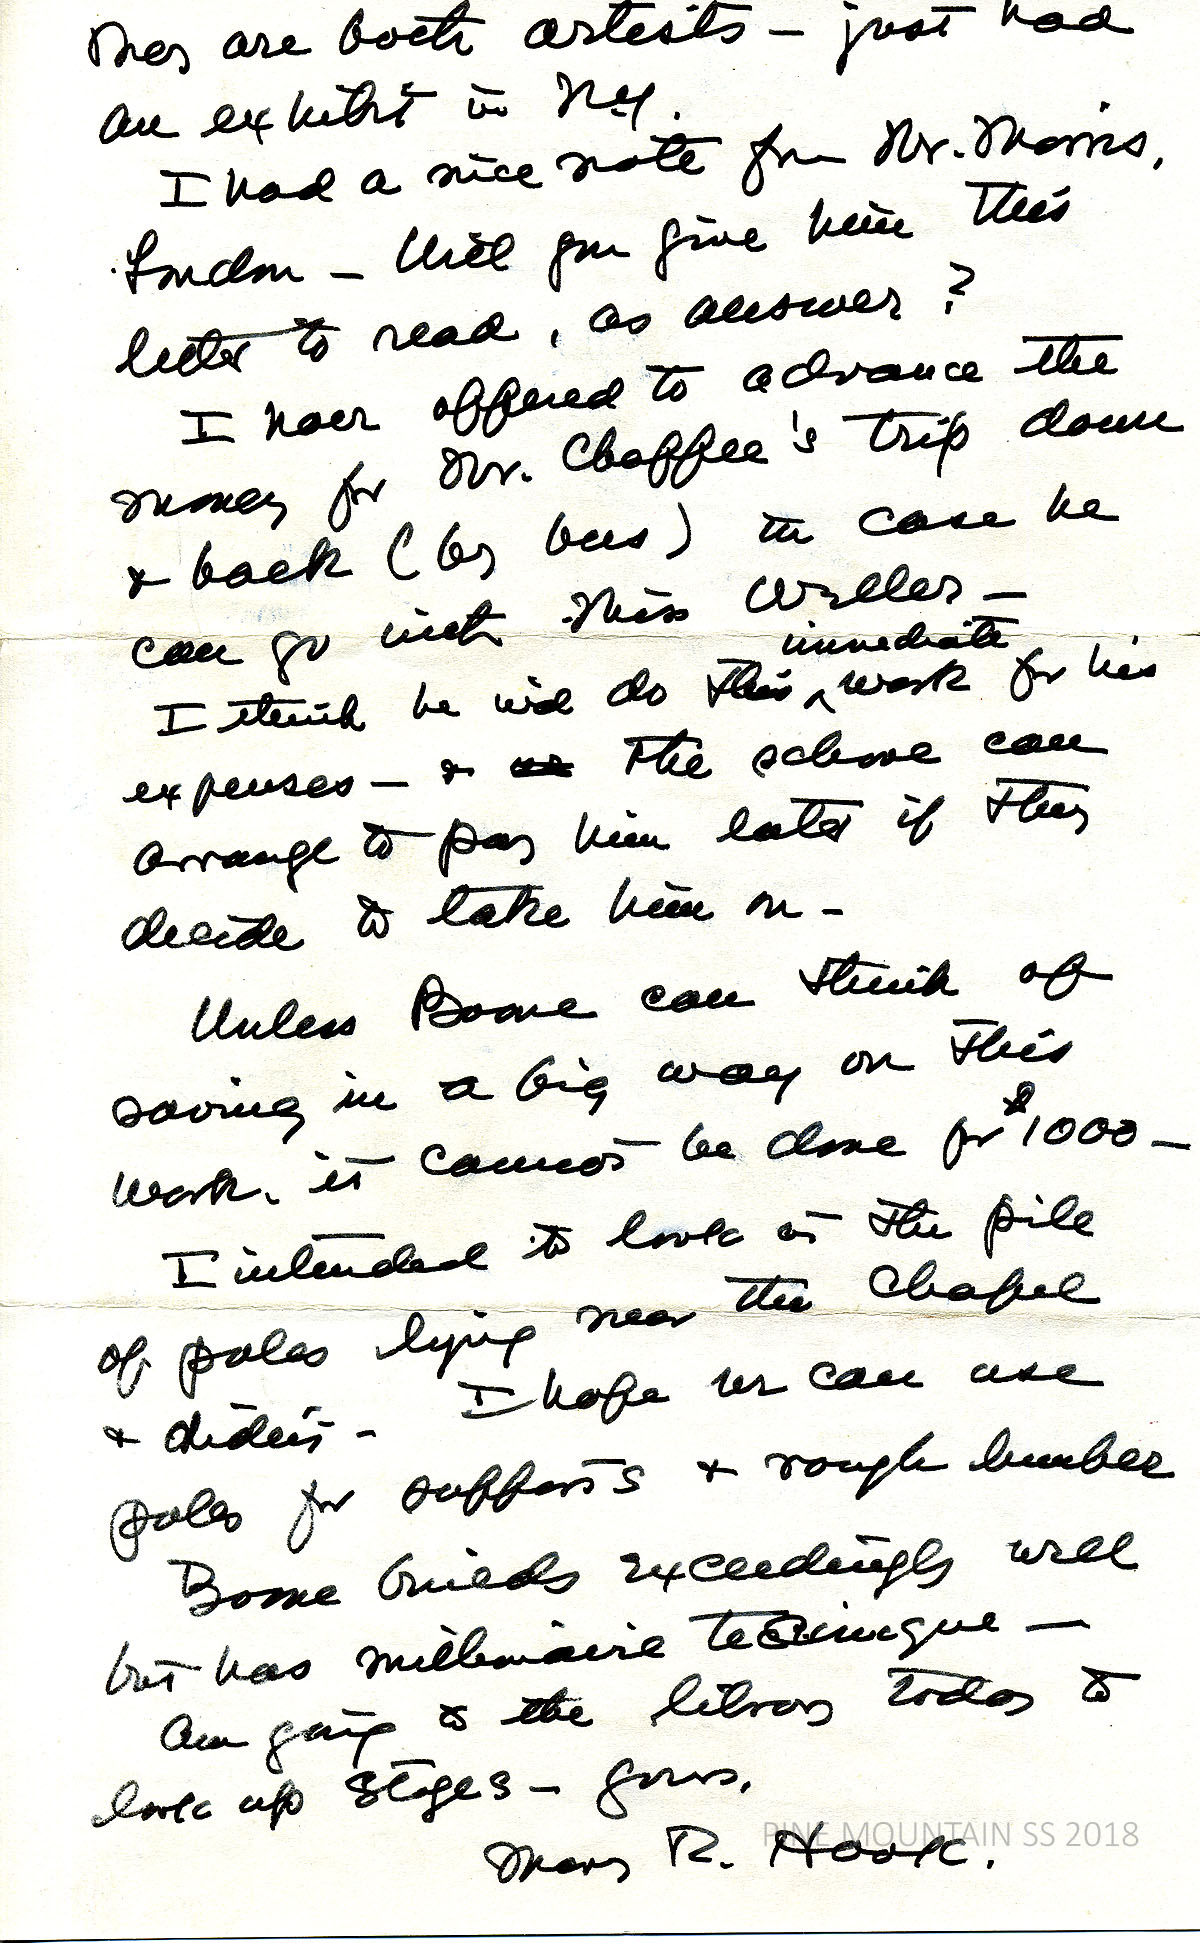 They are both artists – just had
an exhibit in N.Y.
I had a nice note from Mr. Morris,
London – Will you give him this
letter to read, as answer?
I have offered to advance the
money for Mr. Chaffee's trip down
& back (by bus) in case he
can go with Miss Weller –
immediate
I think he will do this ^ work for his
expenses – & the school can
arrange to pay him later if they
decide to take him on –
Unless Boone can think of
saving in a big way on this
work, it cannot be done for $1000 –
I intended to look at the pile
of poles lying near the Chapel
& didn't – I hope we can use
poles for supports & rough lumber
Boone builds exceedingly well
but has millionaire technique –
Am going to the library today to
look up stages – yours,
Mary R. Hook.
PINE MOUNTAIN SS 2018